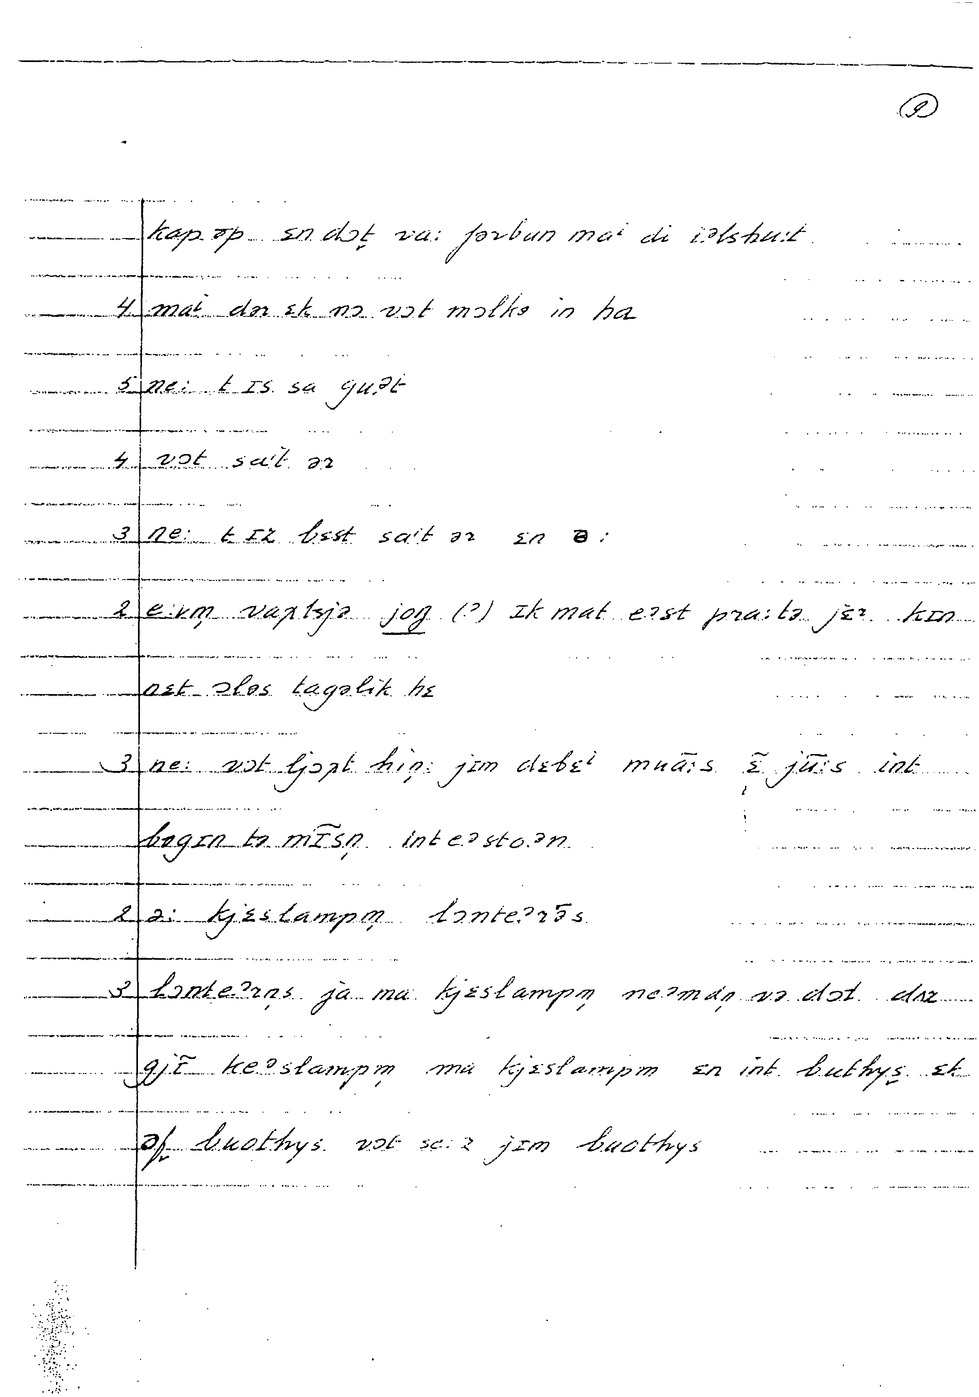 9
kap əp ɛn dɔṭ va: fərbun maⁱ di iəlshu:t
4 maⁱ dər ɛk nə vɔt mɔlkə in ha
5 ne: t ɪs sa guət
4 vɔt saⁱt ər
3 ne: t ɪz bɛst saⁱt ər ɛn ə:
2 e:vm̩ jon̩ (?) ɪk mat eəst pra:tə jɛr kɪn
nɛt ɔləs tagəlik hɛ
3 ne: vɔt ljɔpt hin̩: jɪm dɛbɛⁱ muã:s ɛ̃ jũ:s int
bəgɪn tə mɪ̃sn̩ inteəstoən
2 ə: kjɛslampm̩ lɔnteərə̃s
3 lɔnteərn̩s ja ma kjɛslampm̩ neəmdn̩ və dɔt dɪz
gjɪ̃ keəslampm̩ ma kjɛslampm ɛn int buthys ɛk
əf buəthys vɔt se:z jɪm buəthys